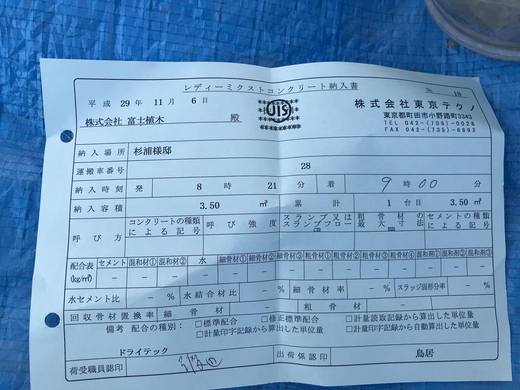 レディーミクストコンクリート納入書
№ 18
平成 29年 11月 6日
株式会社 富士植木 殿
JIS
株式会社東京テクノ
東京都町田市小野路町3343
TEL 042-708-0028
FAX 042-735-6892
納入場所 杉浦様邸
運搬車番号 28
納入時刻 発 8時 21分 着 9時 00分
納入容積 3.50 ㎥ 累計 1台目 3.50 ㎥
呼び方 コンクリートの種類による記号 呼び強度 スランプ又はスランプフロー 粗骨材の最大寸法 セメントの種類による記号
配合表(kg/㎥) セメント 混和材① 混和材② 水 細骨材① 細骨材② 細骨材③ 粗骨材① 粗骨材② 粗骨材③ 混和剤① 混和剤② 混和剤③
水セメント比 -% 水結合材比 -% 細骨材率 -% スラッジ固形分率 -%
回収骨材置換率 細骨材 粗骨材
備考 配合の種別: □標準配合 □修正標準配合 □計量読取記録から算出した単位量
□計量印字記録から算出した単位量 □計量印字記録から自動算出した単位量
ドライテック
荷受職員認印 出荷係認印 鳥居